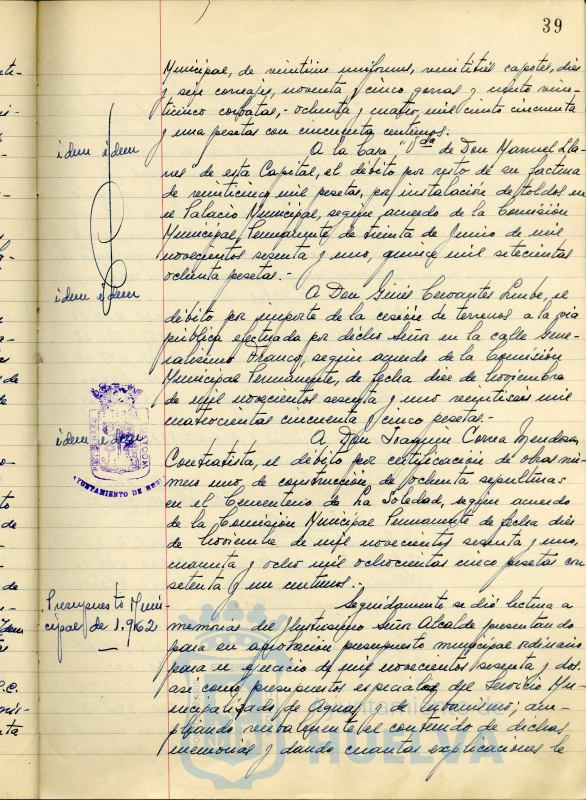 39
Municipal, de veintiún uniformes, veintitrés capotes, dies
y seis correajes, noventa y cinco gorras y ciento vein-
ticinco corbatas,- ochenta y cuatro mil ciento cincuenta
y una pesetas con cincuenta centimos.
idem idem
A la Casa "Vda de Don Manuel Lla-
nes" de esta Capital, el débito por resto de su factura
de veinticinco mil pesetas, por instalación de toldos en
el Palacio Municipal, según acuerdo de la Comisión
Municipal Permanente de treinta de Junio de mil
novecientos sesenta y uno, quince mil setecientas
ochenta pesetas.-
idem idem
A Don Ginés Cervantes, el
débito por importe de la cesión de terrenos a la vía
pública efectuada por dicho Señor en la calle Gene-
ralísimo Franco, según acuerdo de la Comisión
Municipal Permanente, de fecha diez de Noviembre
de mil novecientos sesenta y uno veintiseis mil
cuatrocientas cincuenta y cinco pesetas.-
idem idem
A Don Joaquin Correa Mendoza,
Contratista, el débito por certificación de obras nú-
mero uno, de construcción de ochenta sepulturas
en el Cementerio de La Soledad, según acuerdo
de la Comisión Municipal Permanente de fecha diez
de Noviembre de mil novecientos sesenta y uno,
cuarenta y ocho mil ochocientas cinco pesetas con
setenta y un centimos.-
AYUNTAMIENTO DE HUELVA
Presupuesto Muni-
cipal de 1.962
Seguidamente se dió lectura a
memorias del Ilustrisimo Señor Alcalde presentando
para su aprobación presupuesto municipal ordinario
para el ejercicio de mil novecientos sesenta y dos,
así como presupuestos especiales del Servicio Mu-
nicipalizado de Aguas y de Urbanismo; am-
pliando verbalmente el contenido de dichas
memorias y dando cuantas explicaciones le
HUELVA